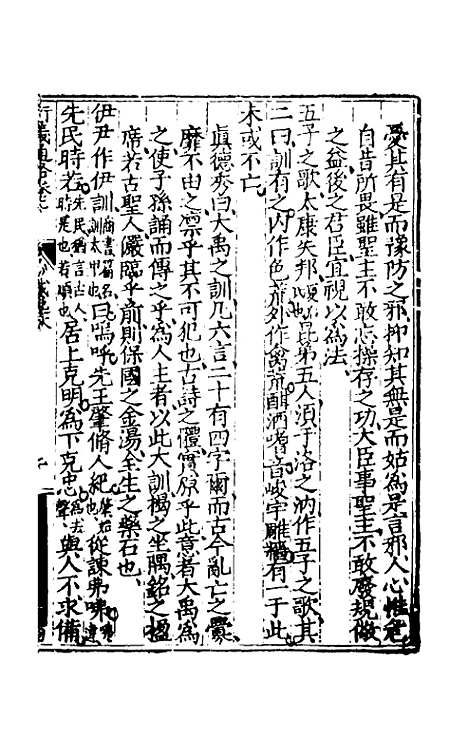 憂其有是而豫防之邪抑知其無是而姑為是言邪人心惟危
自昔所畏雖聖主不敢忘操存之功大臣事聖主不敢廢規儆
之益後之君臣宜視以為法
五子之歌太康失邦昆弟五人須于洛之汭作五子之歌其
二曰訓有之內作色荒外作禽荒酣酒嗜音峻宇雕牆有一于此
未或不亡
眞德秀曰大禹之訓凡六言二十有四字爾而古今亂亡之釁
靡不由之凛乎其不可犯也古詩之體實原乎此意者大禹為
之使子孫誦而傳之乎為人主者以此大訓揭之坐隅銘之楹
席若古聖人儼臨乎前則保國之金湯全生之藥石也
伊尹作伊訓商書篇名訓太甲也曰嗚呼先王肇脩人紀肇始也從諫弗咈咈違
先民時若先民猶言古人時是也若順也居上克明為下克忠為去聲與人不求備
衍義通略卷之